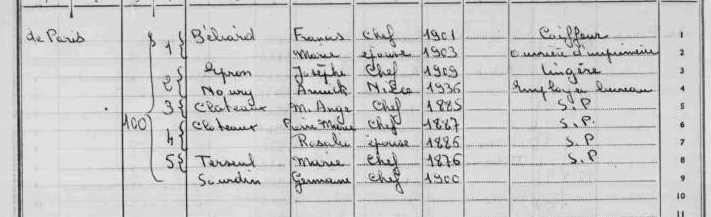 de Paris 1 Béliard Francis chef 1901 Coiffeur 1
Marie épouse 1903 ouvrière d'imprimerie 2
2 Josèphe Chef 1909 lingère 3
Noury Annick Nièce 1936 Employée bureau 4
3 Chateaux M. Ange Chef 1885 S.P 5
100 Chateaux Pierre Marie chef 1887 S.P. 6
4 Rosalie épouse 1886 S.P 7
5 Marie Chef 1876 S.P 8
Sourdin Germaine chef 1900 9
10
11